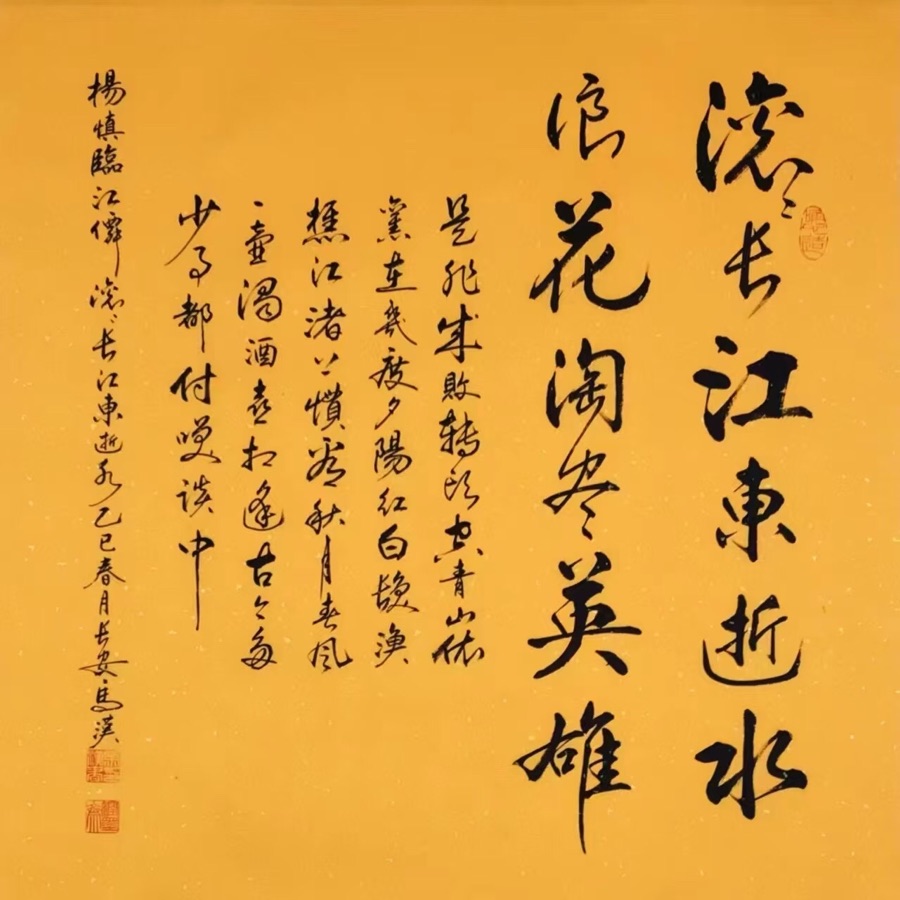 滚〻长江東逝水
浪花淘尽英雄
是非成敗轉头空青山依
舊在幾度夕陽红白髮漁
樵江渚上慣看秋月春风
一壺濁酒喜相逢古今多
少事都付咲谈中
楊慎臨江僊 滚〻长江東逝水 乙巳春月长安馬漢